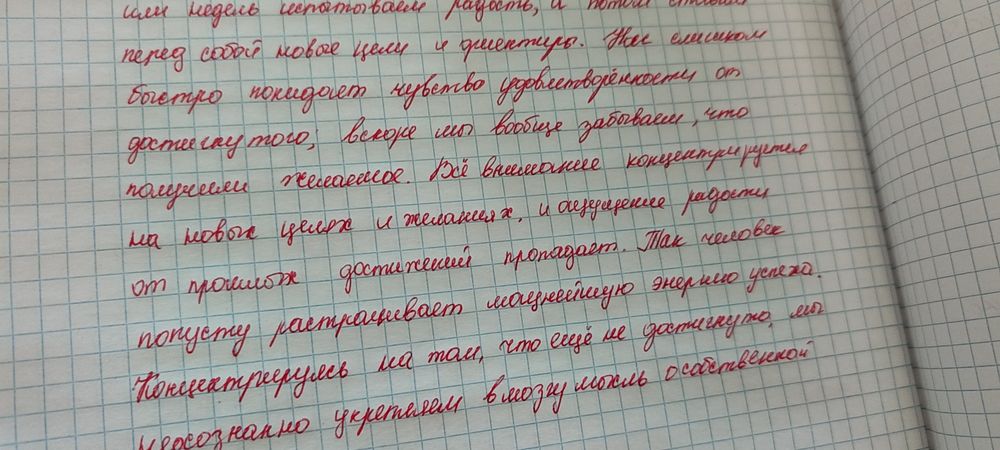 или недель испытываем радость, а потом ставим
перед собой новые цели и ориентиры. Нас слишком
быстро покидает чувство удовлетворённости от
достигнутого, вскоре мы вообще забываем, что
получили желаемое. Всё внимание концентрируется
на новых целях и желаниях, и ощущение радости
от прошлых достижений пропадает. Так человек
попусту растрачивает мощнейшую энергию успеха.
Концентрируясь на том, что ещё не достигнуто, мы
неосознанно укрепляем в мозгу мысль о собственной